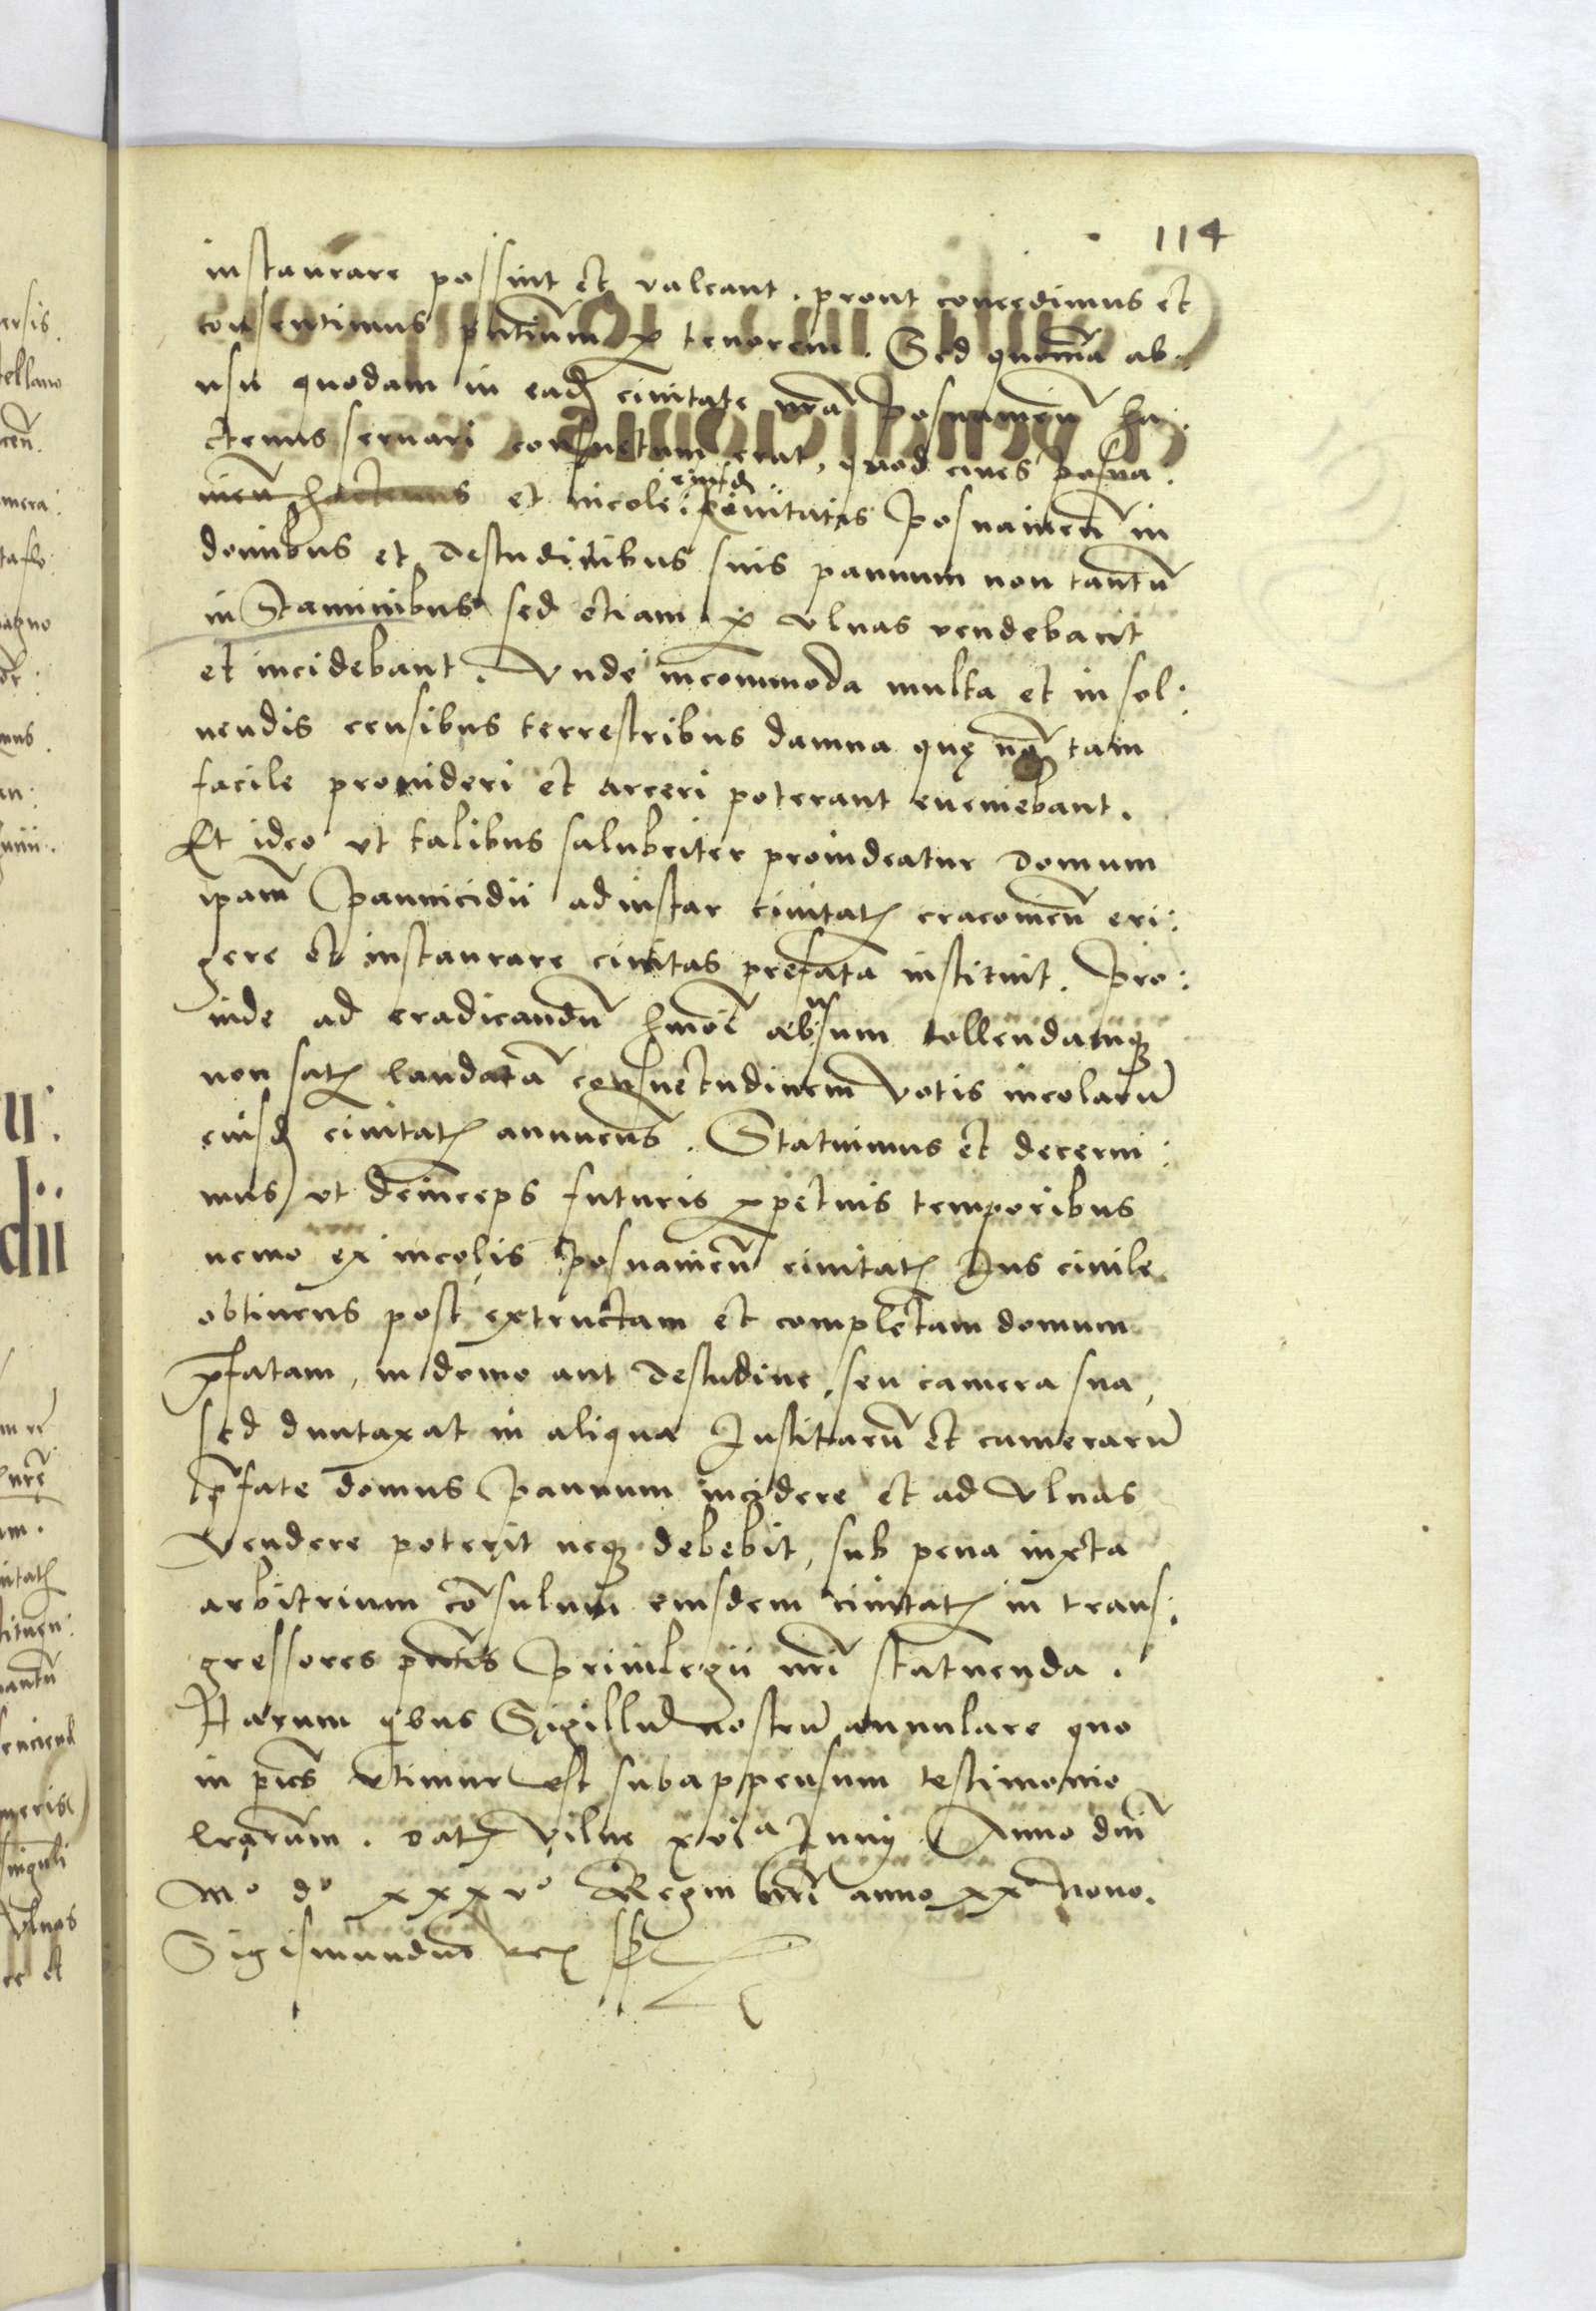 114
instaurare possint et valeant. prout concedimus et
consentimus pñtium p tenorem. Sed quoniã ab:
usu quodam in eadẽ civitate nrã Posnaniẽn ha:
ctenus servari consuetum erat, quod cives Posna:
niẽn hactenus et incole eiusdẽ civitatis Posnaniẽn in
domibus et Testudinibus suis pannum non tantũ
in Staminibus sed etiam p ulnas vendebant
et incidebant. Unde incommoda multa et in sol:
vendis censibus terrestribus damna quę nõ tam
facile provideri et arceri poterant eveniebant.
Et ideo ut talibus salubriter provideatur Domum
ipam Pannicidii ad instar civitatis cracoviẽn eri:
gere et instaurare civitas prefata instituit. Pro:
inde ad eradicandũ hmõi abusum tollendamq
non satis laudatã consuetudinem Votis incolarũ
eiusdẽ civitatis annuens. Statuimus et decerni:
mus, ut deinceps futuris ppetuis temporibus
nemo ex incolis Posnaniẽn civitatis Ius civile
obtinens post extructam et completam domum
pfatam, in domo aut Testudine, seu camera sua,
sed duntaxat in aliqua Institarũ et camerarũ
pfate domus Pannum incidere et ad Ulnas
Vendere poterit neq debebit, sub pena iuxta
arbitrium cõsulum eiusdem civitatis in trans:
gressores pntis Privilegii nrĩ statuenda.
Harum qbus Sigillũ nostrũ annulare quo
in pñs utimur est subappensum testimonio
lrarum. Datis Vilne xvia Iunij Anno dnĩ
Mº dº xxxvº Regni nrĩ anno xxº Nono.
Sigismundus rex sst